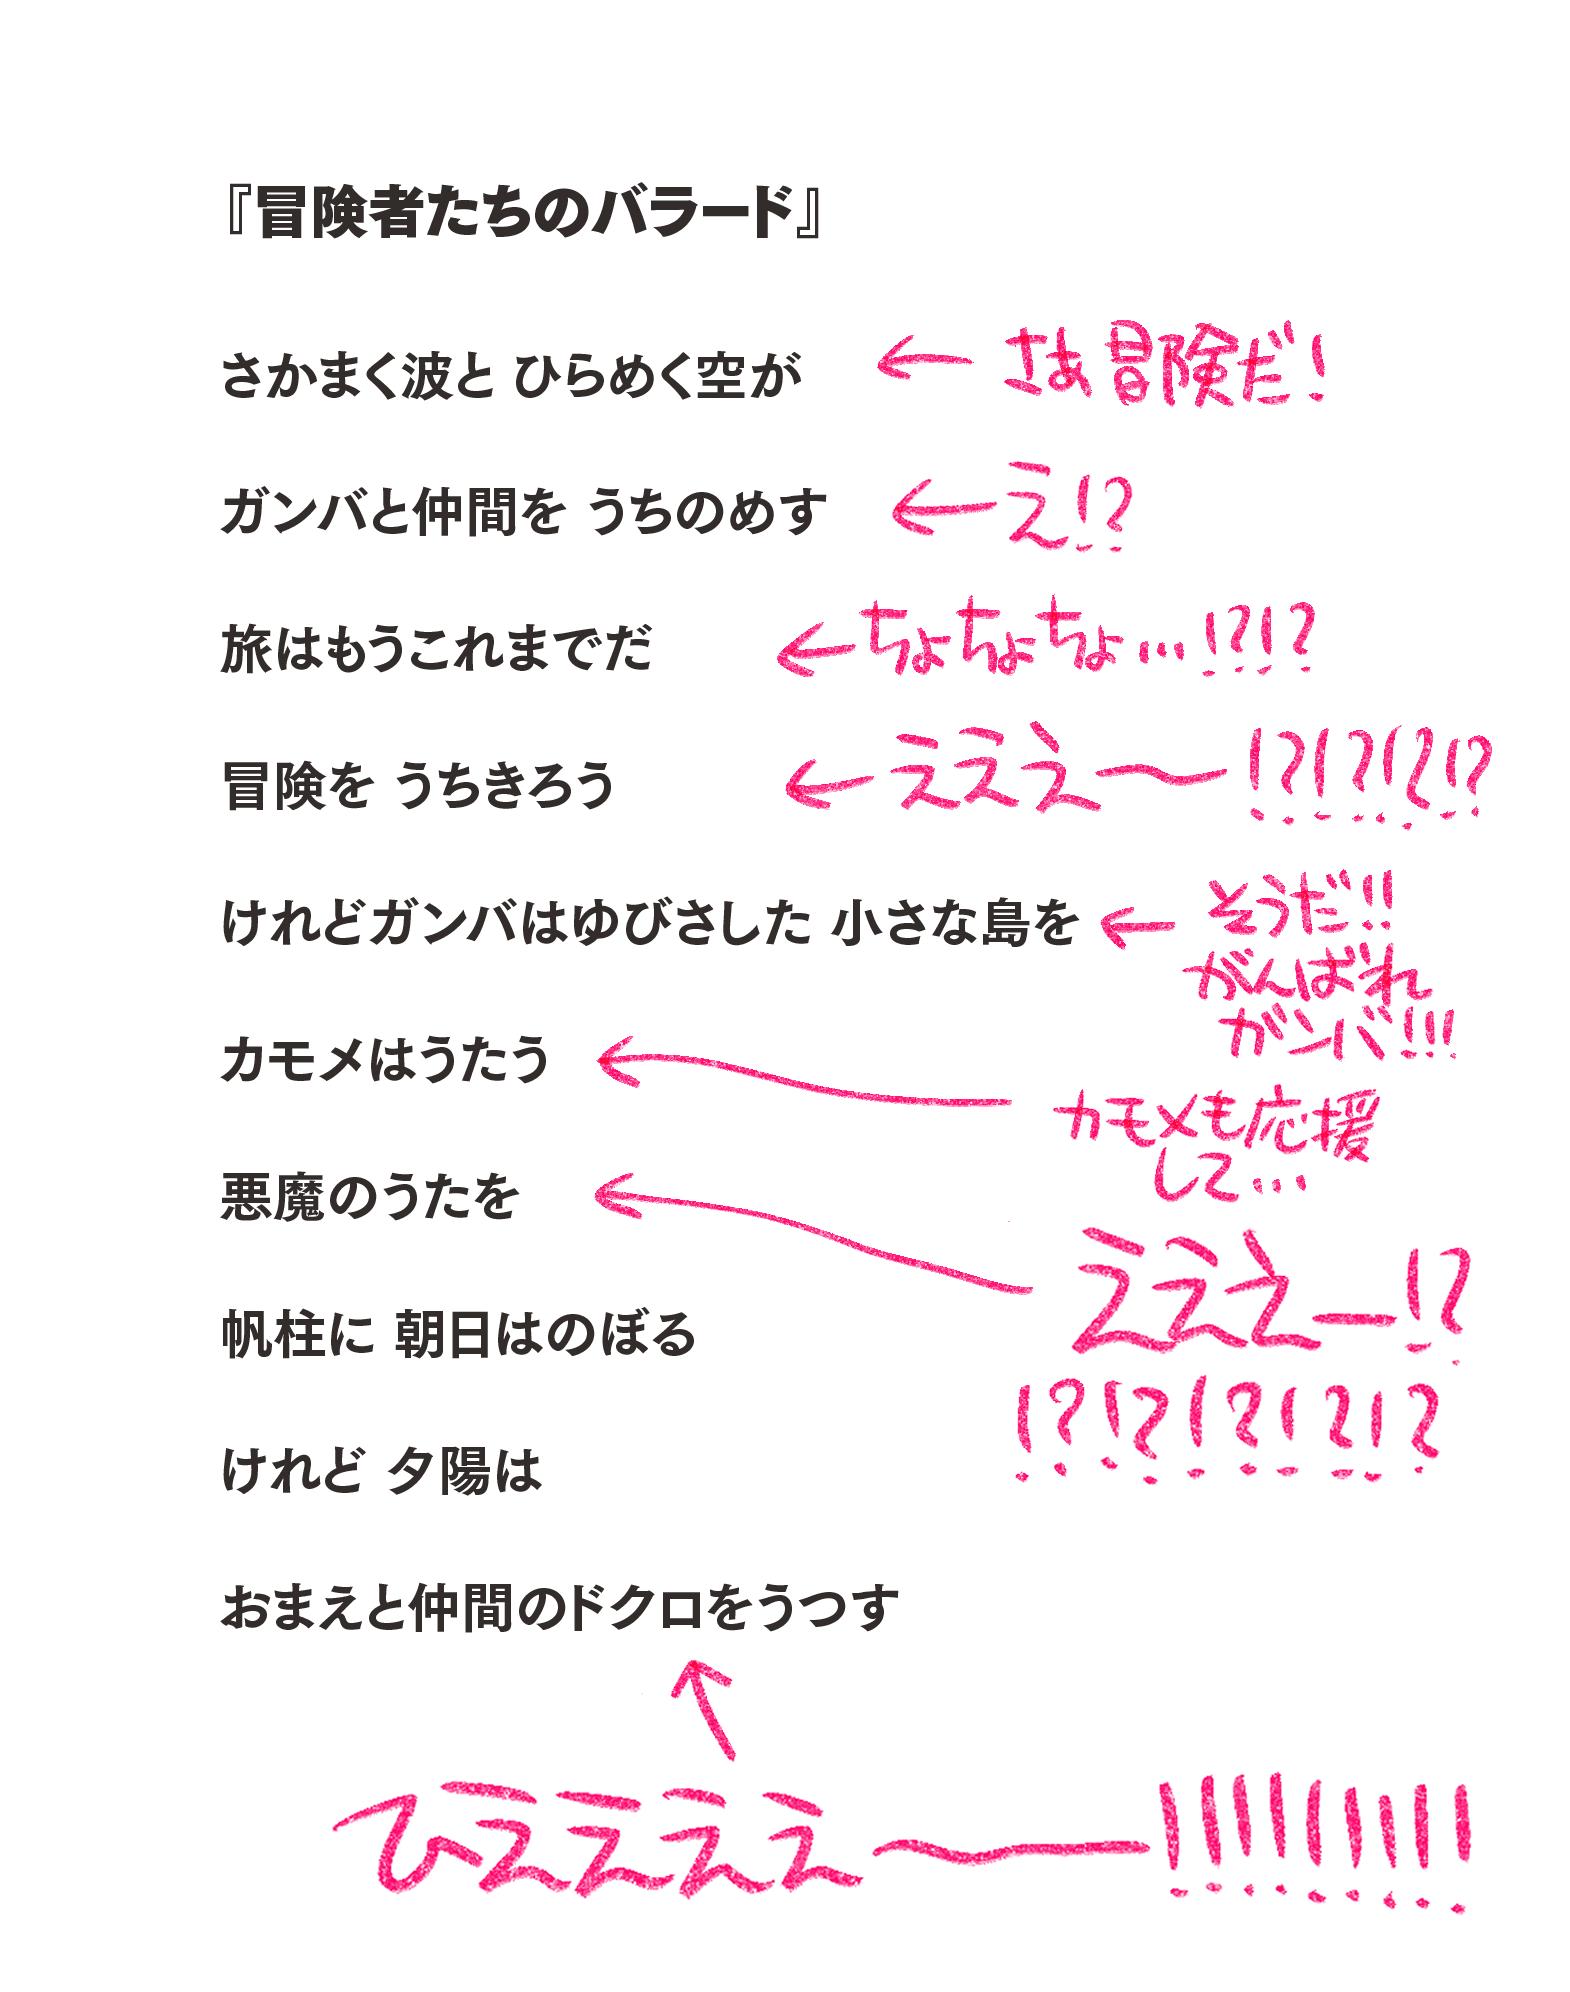 『冒険者たちのバラード』
さかまく波と ひらめく空が
← さあ冒険だ!
ガンバと仲間を うちのめす
← え!?
旅はもうこれまでだ
← ちょちょちょ…!?!?
冒険を うちきろう
← えええ〜!?!?!?!?
けれどガンバはゆびさした 小さな島を
← そうだ!!
がんばれ
ガンバ!!!
カモメはうたう
← カモメも応援
して…
悪魔のうたを
← えええー!?
!?!?!?!?!?
帆柱に 朝日はのぼる
けれど 夕陽は
おまえと仲間のドクロをうつす
↑
ひええええ〜!!!!!!!!!